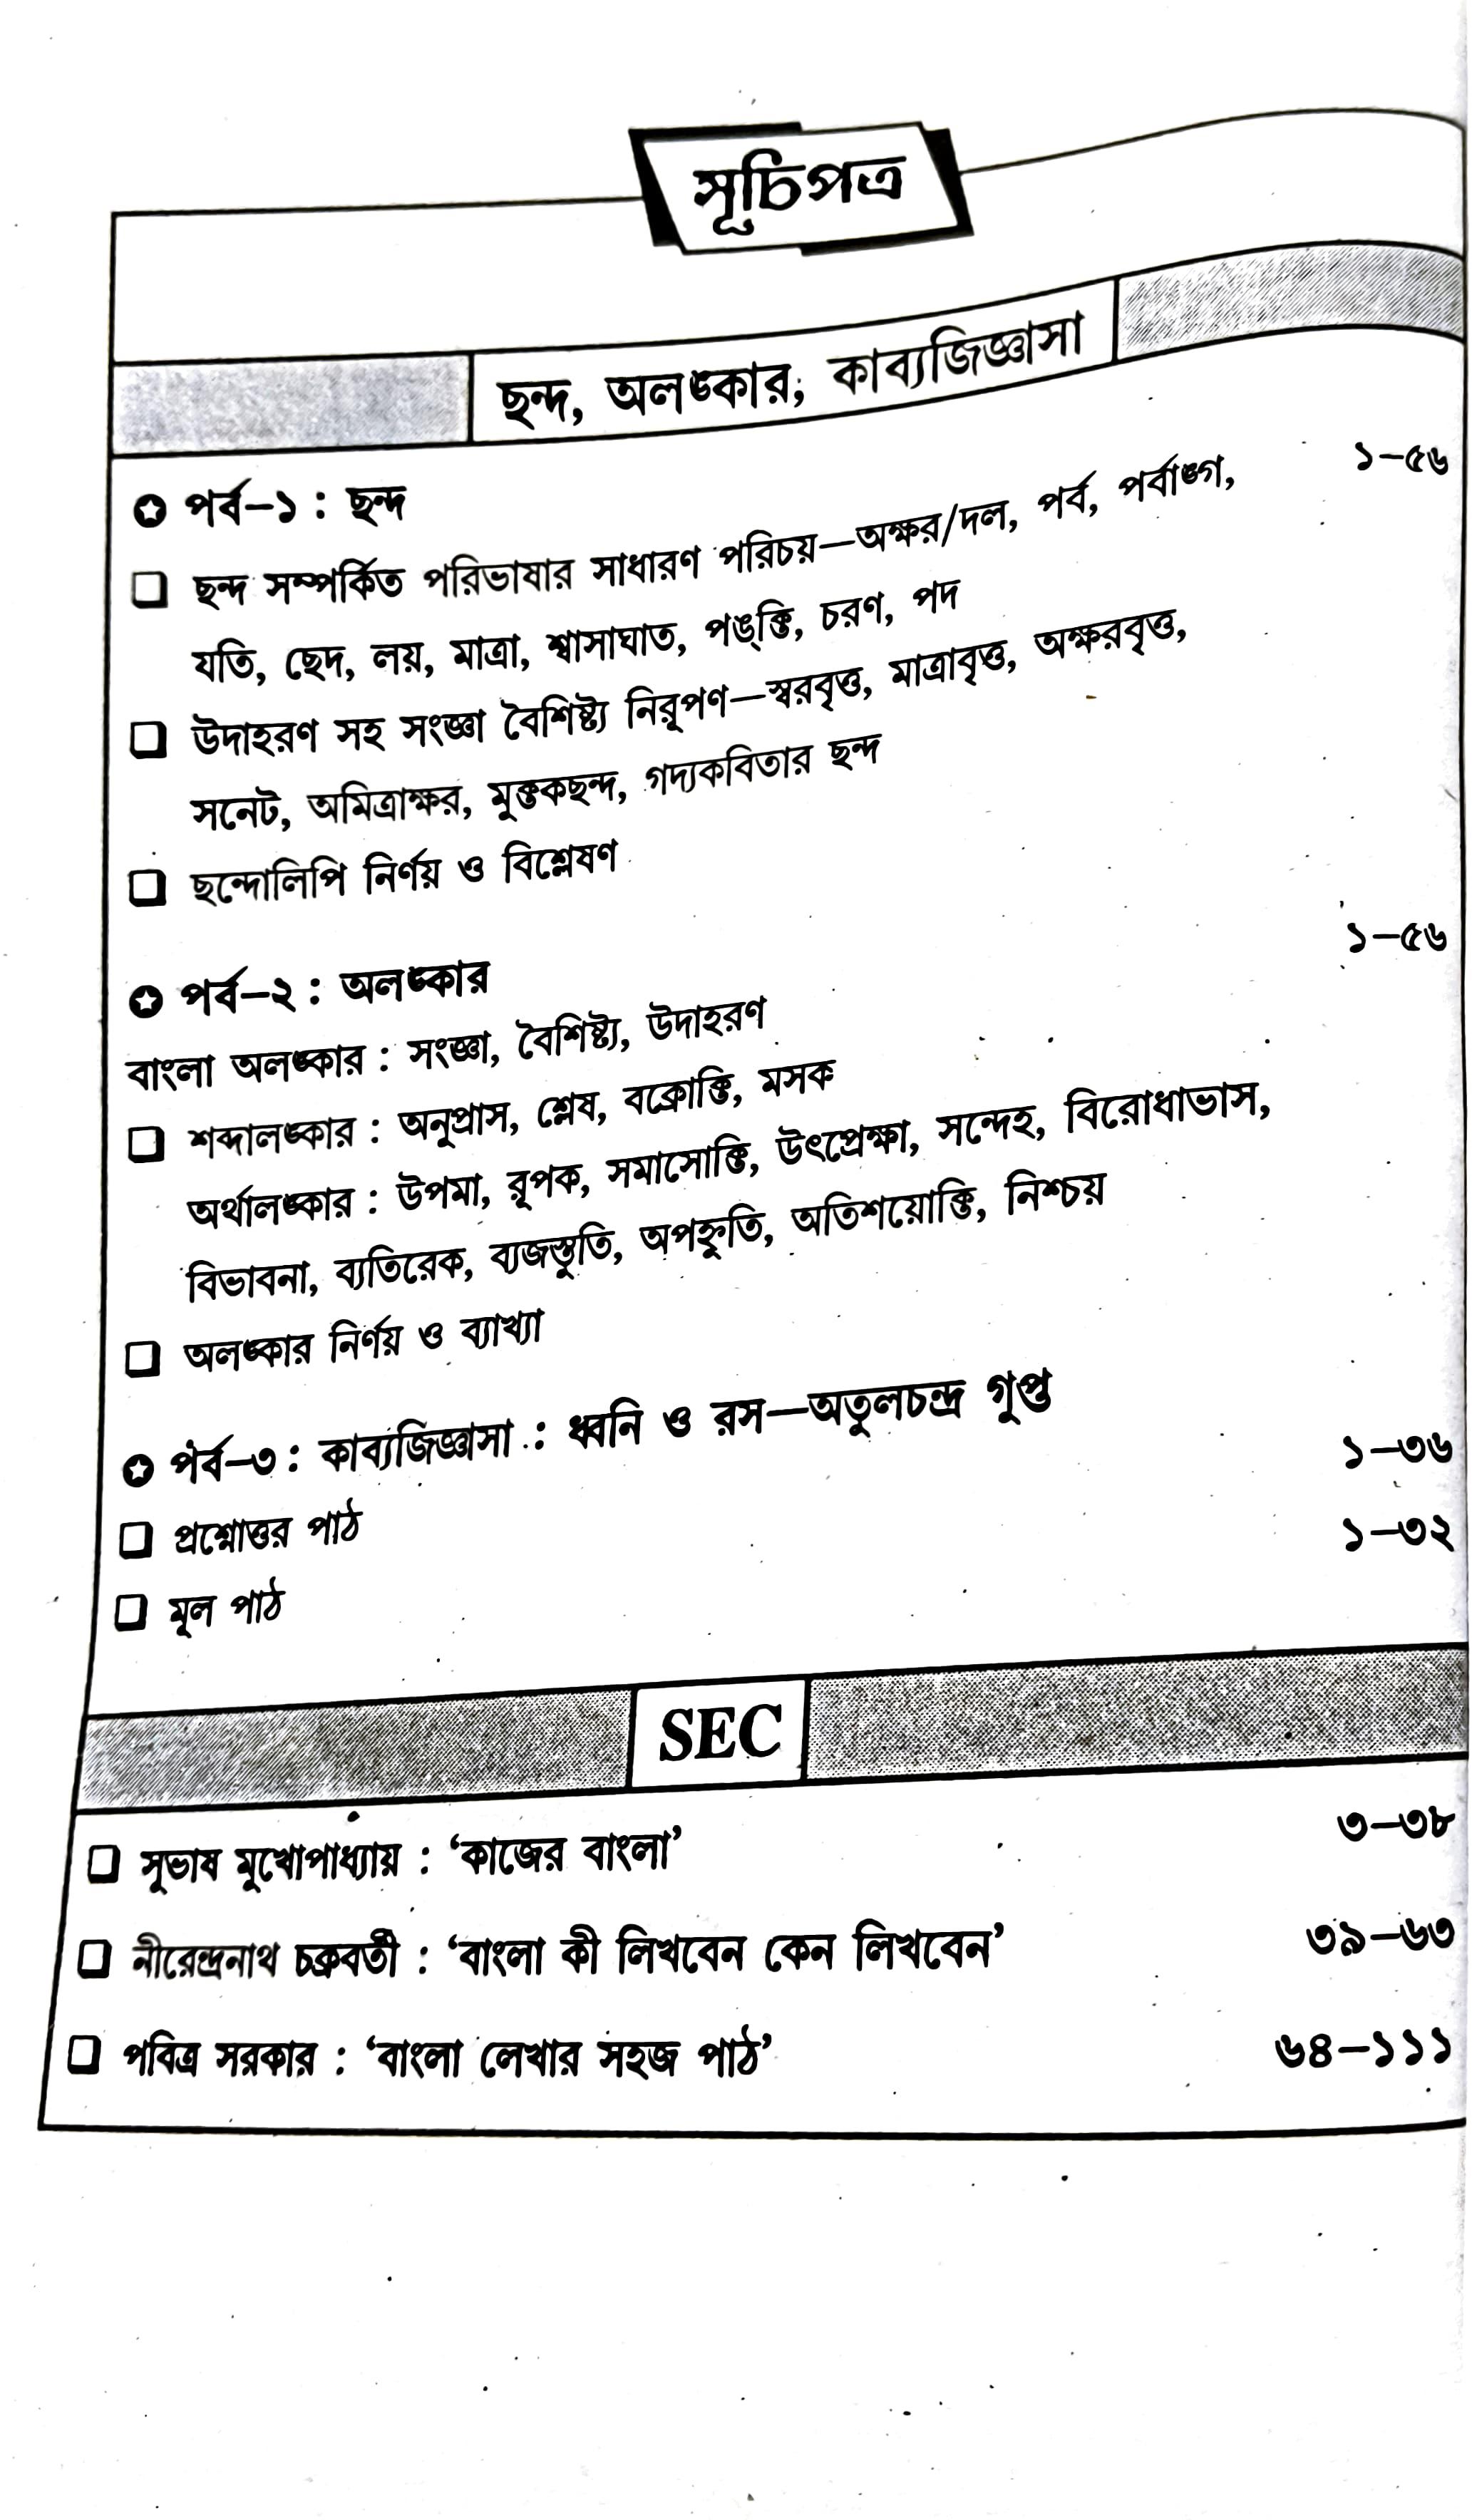 সূচিপত্র
ছন্দ, অলঙ্কার; কাব্যজিজ্ঞাসা
পর্ব–১ : ছন্দ ১–৫৬
ছন্দ সম্পর্কিত পরিভাষার সাধারণ পরিচয়—অক্ষর/দল, পর্ব, পর্বাঙ্গ,
যতি, ছেদ, লয়, মাত্রা, শ্বাসাঘাত, পঙ্‌ক্তি, চরণ, পদ
উদাহরণ সহ সংজ্ঞা বৈশিষ্ট্য নিরূপণ—স্বরবৃত্ত, মাত্রাবৃত্ত, অক্ষরবৃত্ত,
সনেট, অমিত্রাক্ষর, মুক্তকছন্দ, গদ্যকবিতার ছন্দ
ছন্দোলিপি নির্ণয় ও বিশ্লেষণ
পর্ব–২ : অলঙ্কার ১–৫৬
বাংলা অলঙ্কার : সংজ্ঞা, বৈশিষ্ট্য, উদাহরণ
শব্দালঙ্কার : অনুপ্রাস, শ্লেষ, বক্রোক্তি, মসক
অর্থালঙ্কার : উপমা, রূপক, সমাসোক্তি, উৎপ্রেক্ষা, সন্দেহ, বিরোধাভাস,
বিভাবনা, ব্যতিরেক, ব্যজস্তুতি, অপহ্নুতি, অতিশয়োক্তি, নিশ্চয়
অলঙ্কার নির্ণয় ও ব্যাখ্যা
পর্ব–৩ : কাব্যজিজ্ঞাসা : ধ্বনি ও রস—অতুলচন্দ্র গুপ্ত
প্রশ্নোত্তর পাঠ ১–৩৬
মূল পাঠ ১–৩২
SEC
সুভাষ মুখোপাধ্যায় : ‘কাজের বাংলা’ ৩–৩৮
নীরেন্দ্রনাথ চক্রবর্তী : ‘বাংলা কী লিখবেন কেন লিখবেন’ ৩৯–৬৩
পবিত্র সরকার : ‘বাংলা লেখার সহজ পাঠ’ ৬৪–১১১